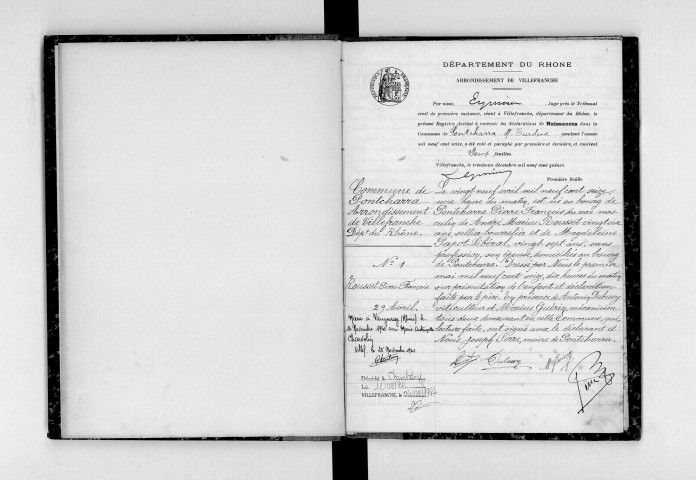 DÉPARTEMENT DU RHONE
ARRONDISSEMENT DE VILLEFRANCHE
Par nous, Juge près le Tribunal
civil de première instance, séant à Villefranche, département du Rhône, le
présent Registre destiné à recevoir les déclarations de Naissances dans la
Commune de Pontcharra s/ Turdine pendant l'année
mil neuf cent seize, a été coté et paraphé par première et dernière, et contient
Deux feuilles.
Villefranche, le trente-un décembre mil neuf cent quinze.
Première feuille
Commune de
Pontcharra
Arrondissement
de Villefranche
Dépt du Rhône.
N° 1
Rousset Pierre François
29 Avril.
Marié à (Rhône) le
Novembre avec Marie
Villef. le 25 Novembre
Décédé à
Le
VILLEFRANCHE, le
Le vingt neuf avril mil neuf cent seize,
une heure du matin, est né au bourg de
Pontcharra Pierre François du sexe mas-
culin de André Marius Rousset vingt six
ans, sellier bourrelier et de Magdeleine
Papot Libéral, vingt sept ans, sans
profession, son épouse, domiciliés au bourg
de Pontcharra. Dressé par Nous le premier
mai mil neuf cent seize, dix heures du matin
sur présentation de l'enfant et déclaration
faite par le père. En présence de Antonin Dubessy
viticulteur et Marius Guérin, mécanicien
tous deux demeurant en cette Commune, qui,
lecture faite, ont signé avec le déclarant et
Nous Joseph Serre, maire de Pontcharra.